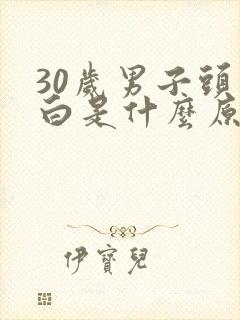 30歲男子頭
白是什麼原
伊寶兒